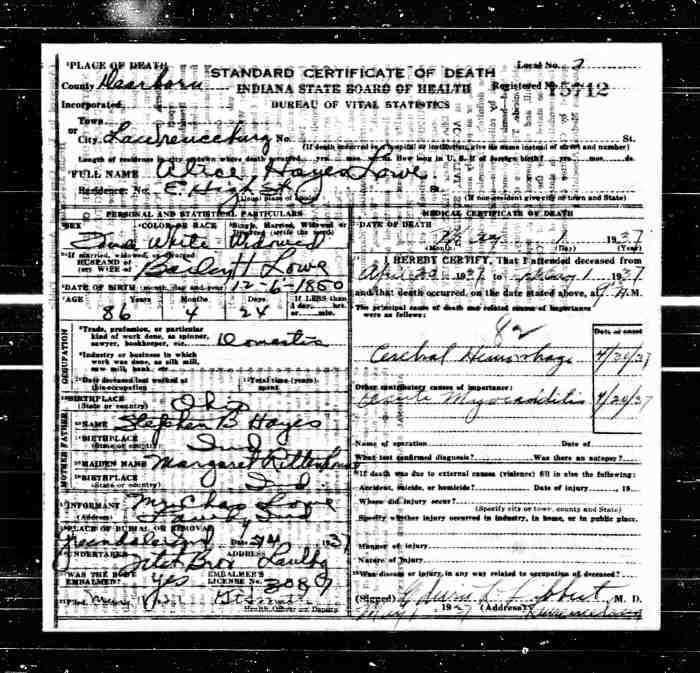 PLACE OF DEATH
STANDARD CERTIFICATE OF DEATH
Local No. 2
County Dearborn
INDIANA STATE BOARD OF HEALTH
Registered No 15712
Incorporated
BUREAU OF VITAL STATISTICS
Town
or
City Lawrenceburg No. St.
(If death occurred in a hospital or institution, give its name instead of street and number)
Length of residence in city or town where death occurred yrs. mos. ds. How long in U. S. if of foreign birth? yrs. mos. ds.
FULL NAME Alice Hayes Lowe
Residence: No. E. High St St.
(Usual place of abode) (If non-resident give city or town and State)
PERSONAL AND STATISTICAL PARTICULARS
SEX COLOR OR RACE Single, Married, Widowed or Divorced (write the word)
White Widowed
If married, widowed, or divorced
HUSBAND of
(or) WIFE of Bailey H. Lowe
DATE OF BIRTH (month, day and year) 12-6-1850
AGE Years Months Days If LESS than
1 day, hrs.
or min.
86 4 24
OCCUPATION
Trade, profession, or particular
kind of work done, as spinner,
sawyer, bookkeeper, etc. Domestic
Industry or business in which
work was done, as silk mill,
saw mill, bank, etc.
Date deceased last worked at
this occupation
Total time (years)
spent
BIRTHPLACE
(State or country) Ohio
MOTHER FATHER
NAME Stephen B Hayes
BIRTHPLACE
(State or country) Ind
MAIDEN NAME Margaret Rittenhouse
BIRTHPLACE
(State or country) Ind.
INFORMANT Mrs Chas Lowe
(Address) Ind
PLACE OF BURIAL OR REMOVAL
Greendale Ind Date 5/4 1937
UNDERTAKER ADDRESS
Fitch Bros Lawbg
WAS THE BODY
EMBALMED? Yes
EMBALMER'S
LICENSE No. 308
Filed
Health Officer or Deputy
MEDICAL CERTIFICATE OF DEATH
DATE OF DEATH May 1 1937
(Month) (Day) (Year)
I HEREBY CERTIFY, That I attended deceased from
1937 to May 1 1937
and that death occurred, on the date stated above, at M.
The principal cause of death and related causes of importance
were as follows:
Date of onset
82
Cerebral Hemorrhage 4/20/37
Other contributory causes of importance:
Acute Myocarditis 4/20/37
Name of operation Date of
What test confirmed diagnosis? Was there an autopsy?
If death was due to external causes (violence) fill in also the following:
Accident, suicide, or homicide? Date of injury , 19
Where did injury occur?
(Specify city or town, county and State)
Specify whether injury occurred in industry, in home, or in public place.
Manner of injury
Nature of injury
Was disease or injury in any way related to occupation of deceased?
(Signed) M. D.
May 1937 (Address)